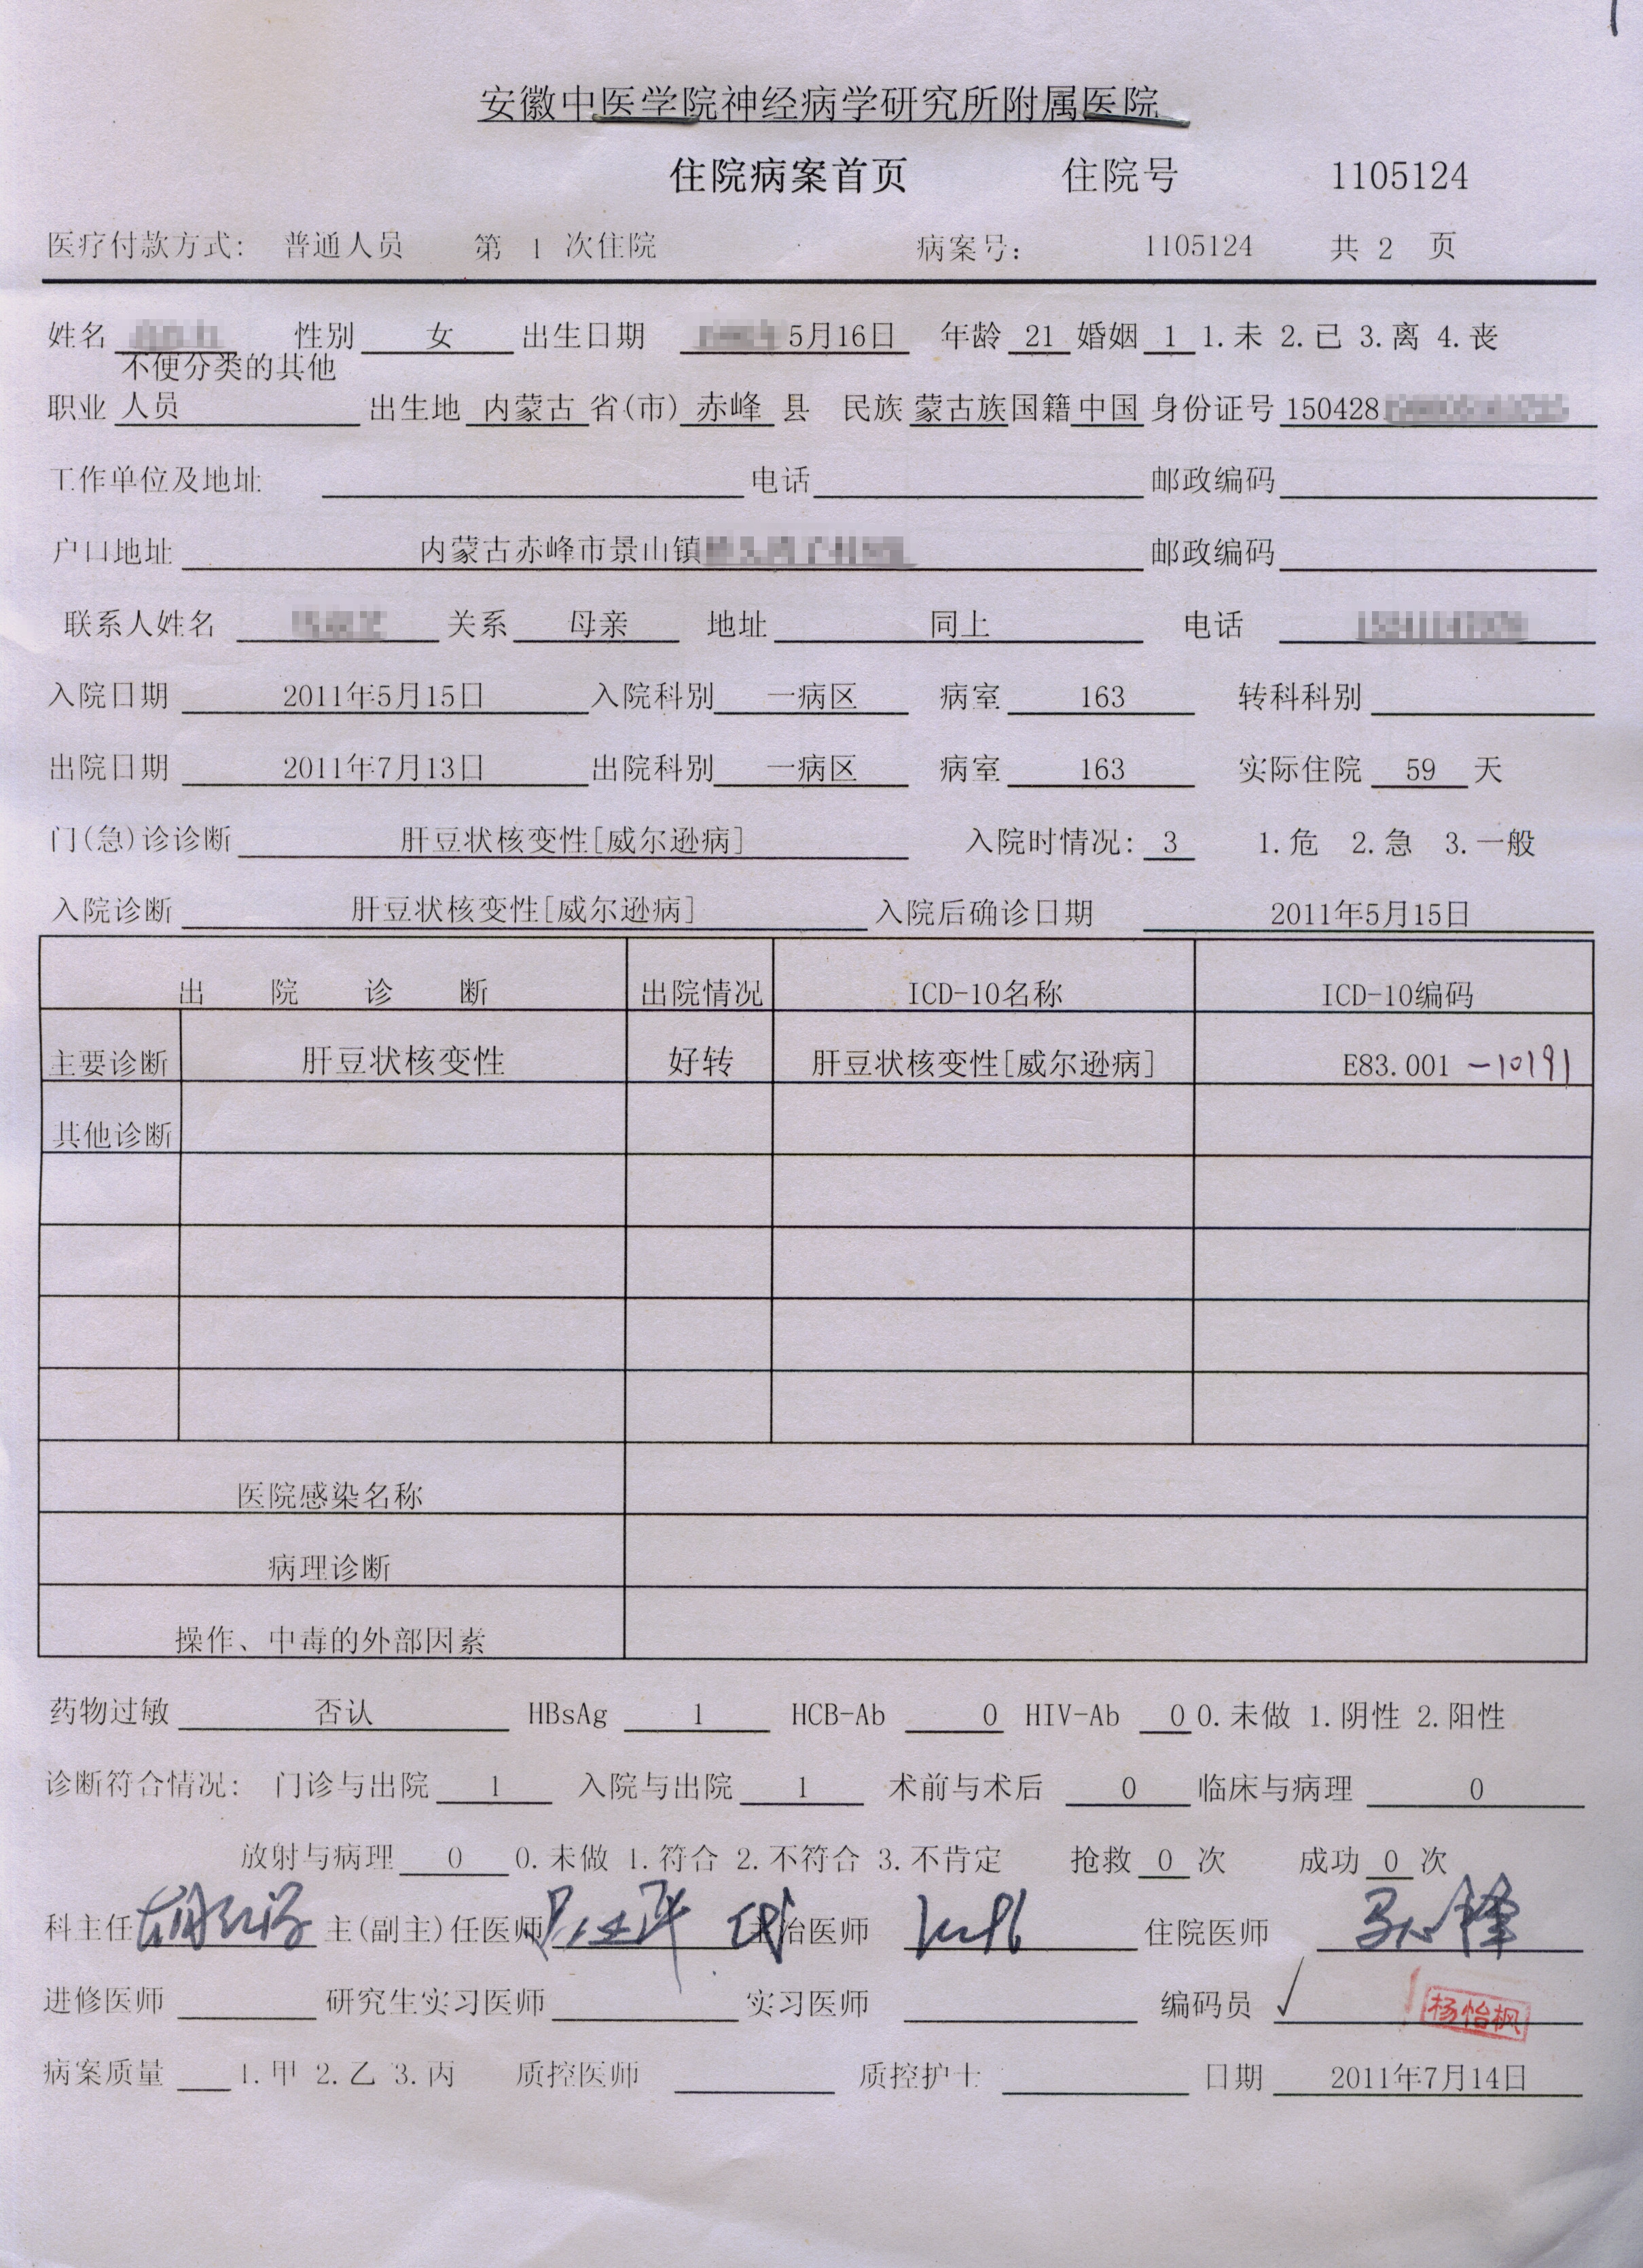 安徽中医学院神经病学研究所附属医院
住院病案首页 住院号 1105124
医疗付款方式: 普通人员 第 1 次住院 病案号: 1105124 共 2 页
姓名 性别 女 出生日期 5月16日 年龄 21 婚姻 1 1.未 2.已 3.离 4.丧
不便分类的其他
职业 人员 出生地 内蒙古 省(市) 赤峰 县 民族 蒙古族 国籍 中国 身份证号 150428
工作单位及地址 电话 邮政编码
户口地址 内蒙古赤峰市景山镇 邮政编码
联系人姓名 关系 母亲 地址 同上 电话
入院日期 2011年5月15日 入院科别 一病区 病室 163 转科科别
出院日期 2011年7月13日 出院科别 一病区 病室 163 实际住院 59 天
门(急)诊诊断 肝豆状核变性[威尔逊病] 入院时情况: 3 1.危 2.急 3.一般
入院诊断 肝豆状核变性[威尔逊病] 入院后确诊日期 2011年5月15日
出 院 诊 断 出院情况 ICD-10名称 ICD-10编码
主要诊断 肝豆状核变性 好转 肝豆状核变性[威尔逊病] E83.001 -10191
其他诊断
医院感染名称
病理诊断
操作、中毒的外部因素
药物过敏 否认 HBsAg 1 HCB-Ab 0 HIV-Ab 0 0.未做 1.阴性 2.阳性
诊断符合情况: 门诊与出院 1 入院与出院 1 术前与术后 0 临床与病理 0
放射与病理 0 0.未做 1.符合 2.不符合 3.不肯定 抢救 0 次 成功 0 次
科主任 主(副主)任医师 主治医师 住院医师
进修医师 研究生实习医师 实习医师 编码员 杨怡枫
病案质量 1.甲 2.乙 3.丙 质控医师 质控护士 日期 2011年7月14日